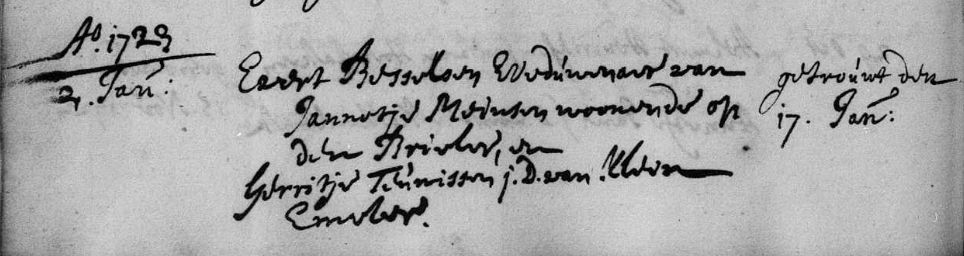 Ao. 1723
2. Jan:
Evert Besselsen Weduwenaer van
Jannetje Meinsen woonende op
den Brieler, en
Gerritje Teunissen j.D. van Klein
Emeler.
getrouwt den
17. Jan: